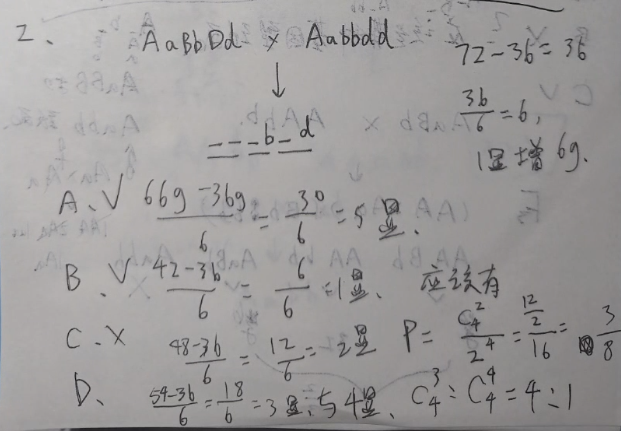 2. AaBbDd × Aabbdd
72-36=36
↓
36/6=6,
_ _ _ b _ d
1显增6g.
A. √ (66g-36g)/6=30/6=5显.
B. √ (42-36)/6=6/6=1显. 应该有
C. × (48-36)/6=12/6=2显 P=C₄²/2⁴=(12/2)/16=3/8
D. (54-36)/6=18/6=3显.与4显. C₄³:C₄⁴=4:1